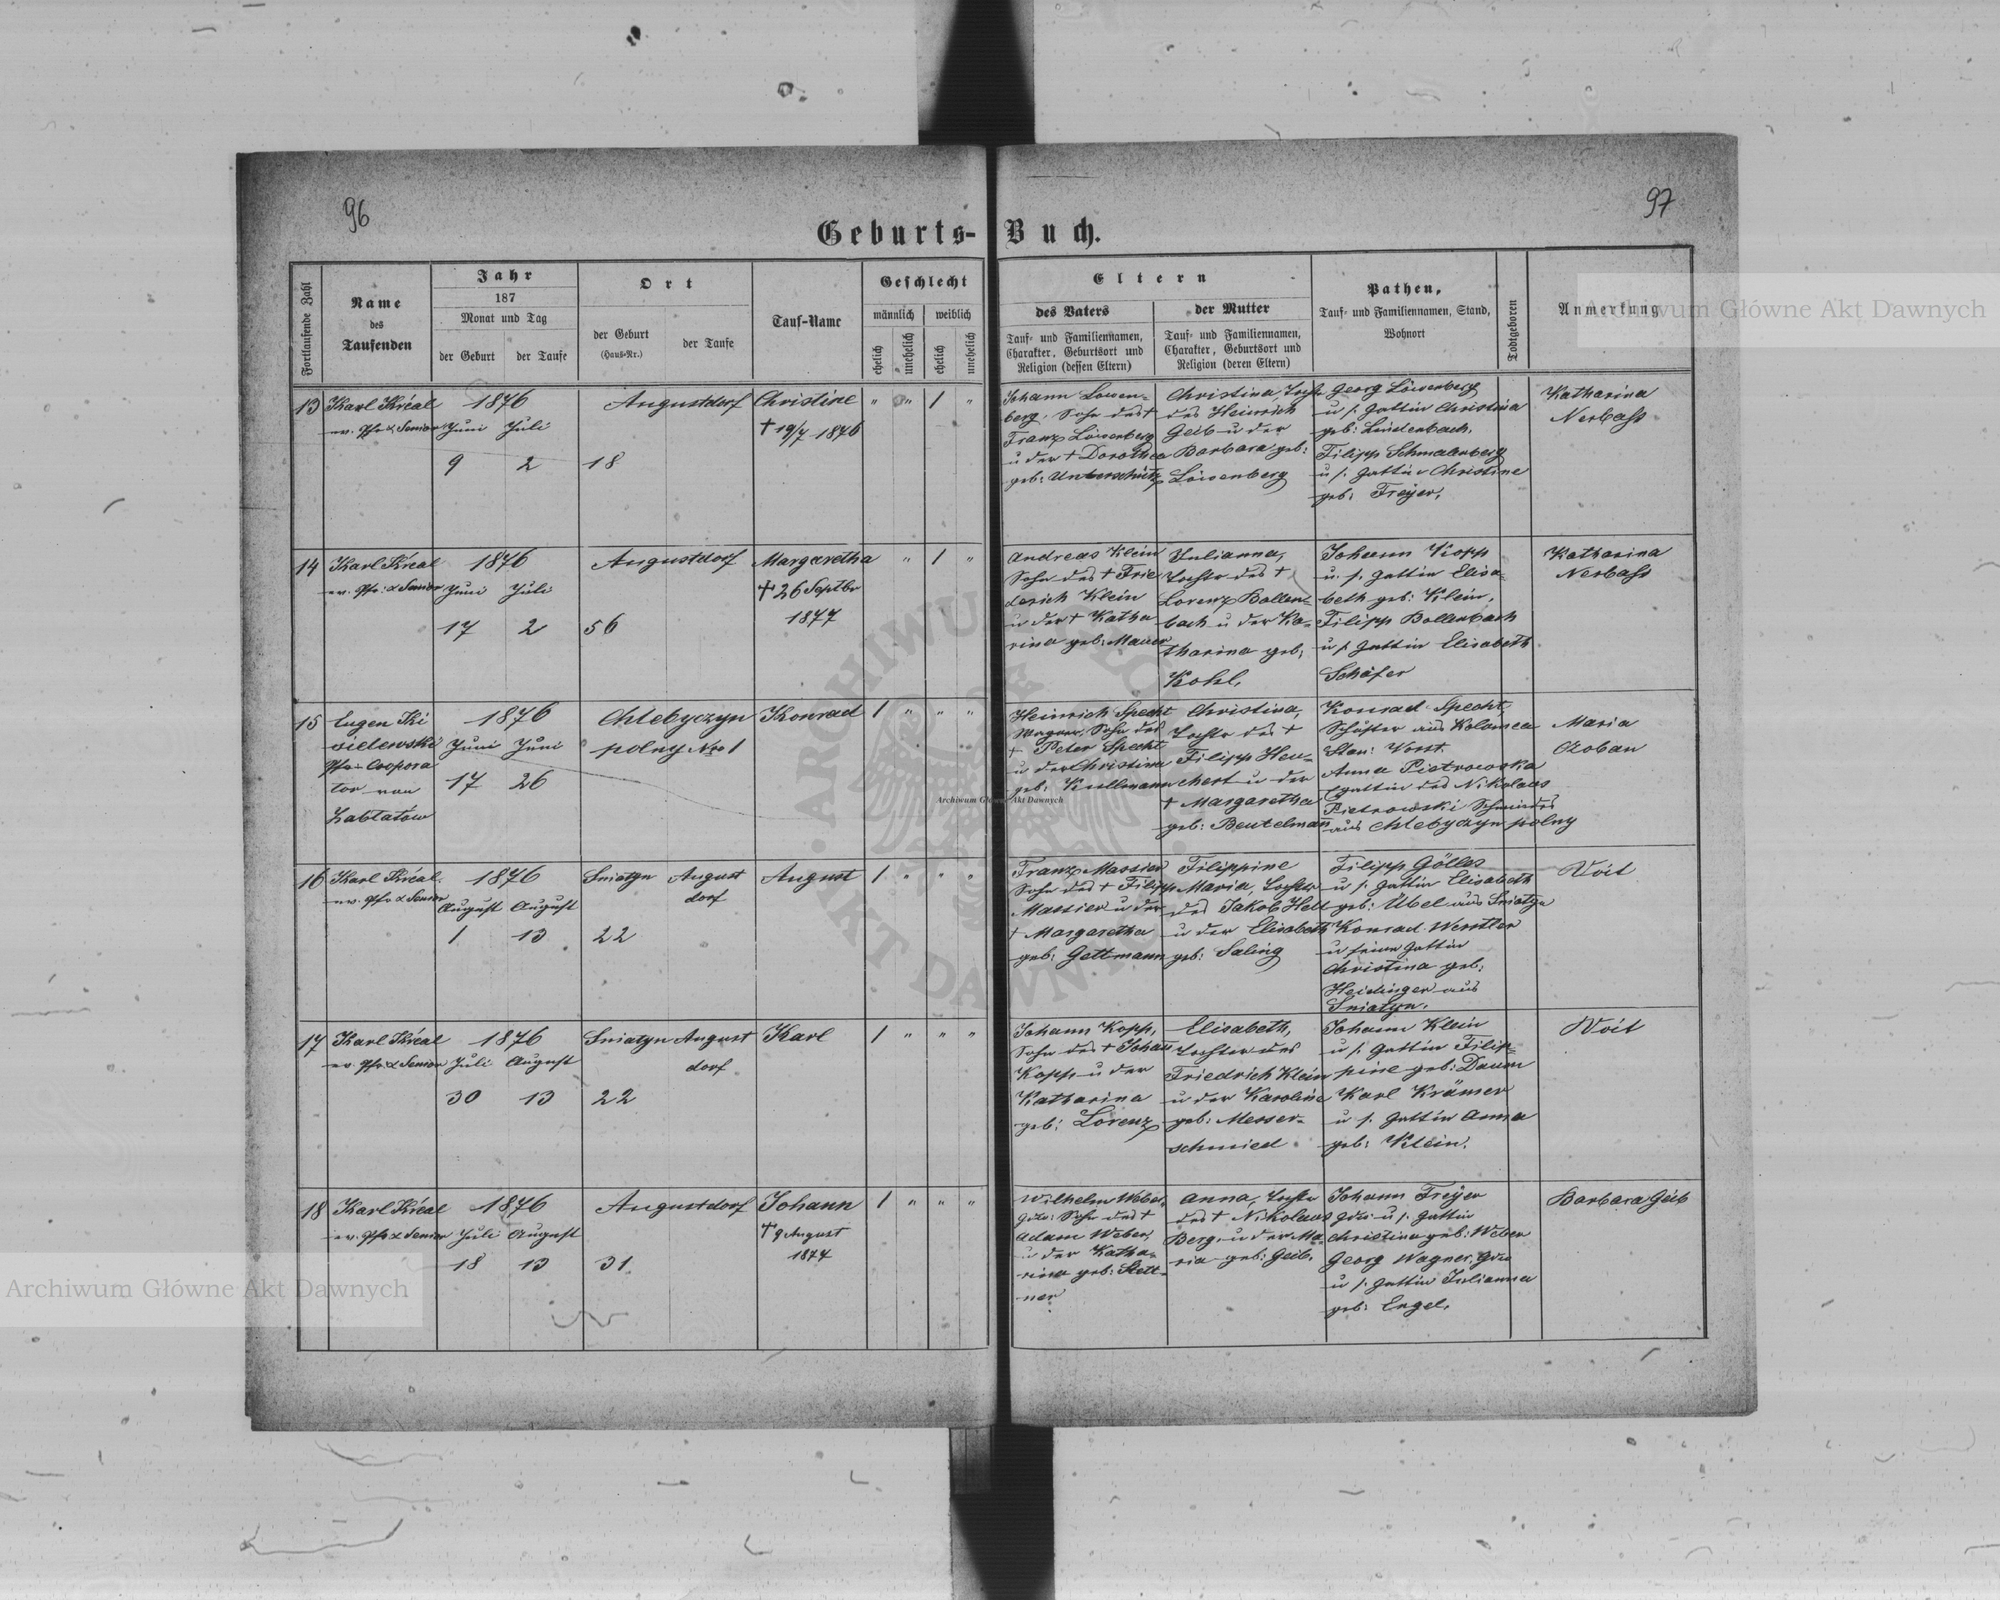 96
97
Geburts-Buch.
Fortlaufende Zahl
Name
des
Taufenden
Jahr
187
Monat und Tag
der Geburt
der Taufe
Ort
der Geburt
(Haus-Nr.)
der Taufe
Tauf-Name
Geschlecht
männlich
weiblich
ehelich
unehelich
ehelich
unehelich
Eltern
des Vaters
Tauf- und Familiennamen,
Charakter, Geburtsort und
Religion (dessen Eltern)
der Mutter
Tauf- und Familiennamen,
Charakter, Geburtsort und
Religion (deren Eltern)
Pathen,
Tauf- und Familiennamen, Stand,
Wohnort
Todtgeboren
Anmerkung
13
Karl Kréal
ev. Pfr. & Senior
1876
Juni Juli
9 2
18
Augustdorf
Christine
† 19/7 1876
" " 1 "
Johann Löwen-
berg, Sohn des †
Franz Löwenberg
u der † Dorothea
geb: Unterschütz
Christina, Tochtr
des Heinrich
Geib u der
Barbara geb:
Löwenberg
Georg Löwenberg
u s. Gattin Christina
geb: Lindenbach.
Filipp Schmalenberg
u s. Gattin Christine
geb: Freyer.
Katharina
Nerbass
14
Karl Kréal
ev. Pfr. & Senior
1876
Juni Juli
17 2
56
Augustdorf
Margaretha
† 26 Septbr
1877
" 1 "
Andreas Klein
Sohn des † Frie
derich Klein
u der † Katha
rina geb: Mauer
Julianna,
Tochtr des †
Lorenz Bollen-
bach u der Ka-
tharina geb:
Kohl.
Johann Kopp
u. s. Gattin Elisa-
beth geb: Klein.
Filipp Bollenbach
u s Gattin Elisabeth
Schäfer
Katharina
Nerbass
15
Eugen Ki
sielewski
Pfr. Coopera
tor von
Zablatow
1876
Juni Juni
17 26
Chlebyczyn
polny Nro 1
Konrad
1 " " "
Heinrich Specht
Wagner, Sohn des
† Peter Specht
u der Christina
geb: Kullmann
Christina,
Tochtr des †
Filipp Heu-
chert u der
† Margaretha
geb: Beutelmann
Konrad Specht,
Schuster aus Kolomea
Anna Pietrowska
Gattin des Nikolaus
Pietrowski Schmiedes
aus Chlebyczyn polny
Maria
Czoban
16
Karl Kréal
ev. Pfr & Senior
1876
August August
1 13
Sniatyn
22
August
dorf
August
1 " " "
Franz Massier
Sohn des † Filipp
Massier u der
† Margaretha
geb: Gettmann
Filippine
Maria, Tochtr
des Jakob Hell
u der Elisabeth
geb: Saling
Filipp Gölles
u s. Gattin Elisabeth
geb: Übel aus Sniatyn
Konrad Wendler
u seine Gattin
Christina geb:
Heidinger aus
Sniatyn.
Voit
17
Karl Kréal
ev. Pfr. & Senior
1876
Juli August
30 13
Sniatyn
22
August
dorf
Karl
1 " " "
Johann Kopp,
Sohn des † Johann
Kopp u der
Katharina
geb: Lorenz
Elisabeth,
Tochter des
Friedrich Klein
u der Karoline
geb: Messer-
schmied
Johann Klein
u s. Gattin Filip-
pine geb: Daum
Karl Krämer
u s. Gattin Anna
geb: Klein.
Voit
18
Karl Kréal
ev. Pfr & Senior
1876
Juli August
18 13
31.
Augustdorf
Johann
† 9 August
1877
1 " " "
Wilhelm Weber,
Sohn des †
Adam Weber,
u der Katha-
rina geb: Stett-
ner
Anna, Tochtr
des † Nikolaus
Berg, u der Ma-
ria geb: Geib.
Johann Freyer
u s. Gattin
Christina geb: Weber
Georg Wagner,
u s. Gattin Julianna
geb: Engel.
Barbara Geib
Archiwum Główne Akt Dawnych
Archiwum Główne Akt Dawnych
Archiwum Główne Akt Dawnych